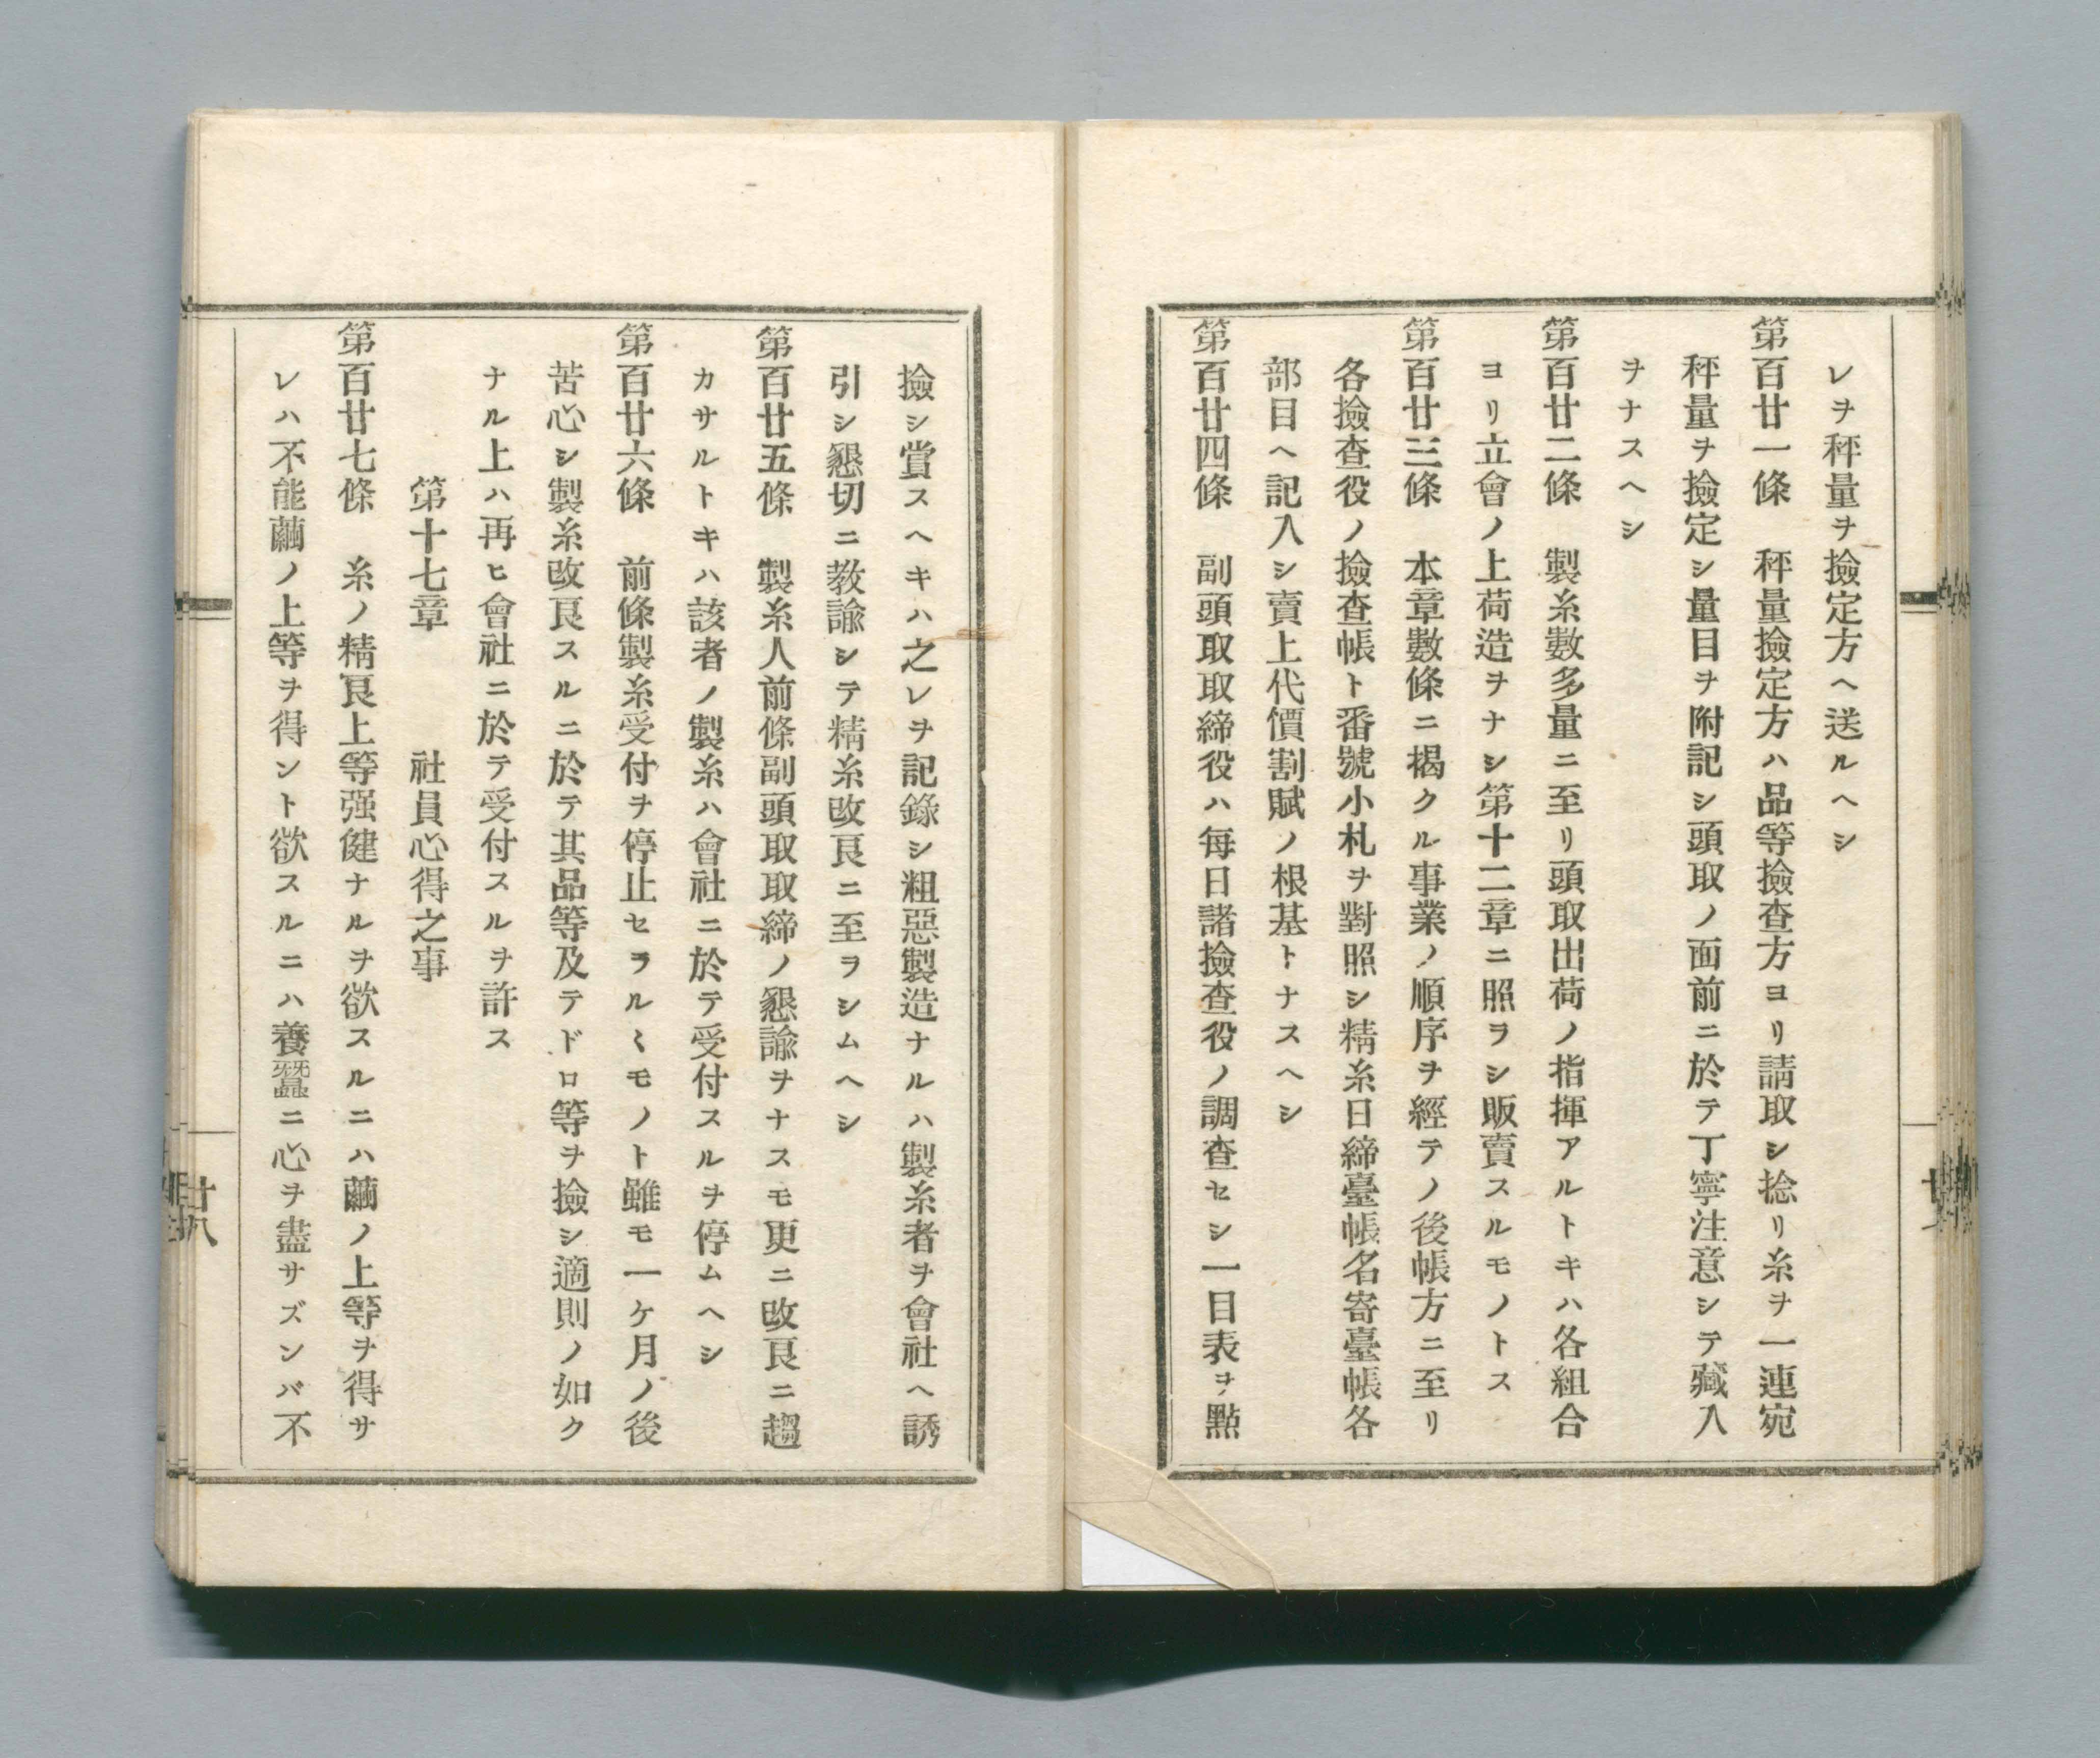 レヲ秤量ヲ撿定方ヘ送ルヘシ
第百廿一條　秤量撿定方ハ品等撿查方ヨリ請取シ捻リ糸ヲ一連宛
秤量ヲ撿定シ量目ヲ附記シ頭取ノ面前ニ於テ丁寧注意シテ藏入
ヲナスヘシ
第百廿二條　製糸數多量ニ至リ頭取出荷ノ指揮アルトキハ各組合
ヨリ立會ノ上荷造ヲナシ第十二章ニ照ラシ販賣スルモノトス
第百廿三條　本章數條ニ揭クル事業ノ順序ヲ經テノ後帳方ニ至リ
各撿查役ノ撿查帳ト番號小札ヲ對照シ精糸日締臺帳名寄臺帳各
部目ヘ記入シ賣上代價割賦ノ根基トナスヘシ
第百廿四條　副頭取取締役ハ每日諸撿查役ノ調查セシ一目表ヲ點
撿シ賞スヘキハ之レヲ記錄シ粗惡製造ナルハ製糸者ヲ會社ヘ誘
引シ懇切ニ敎諭シテ精糸改良ニ至ラシムヘシ
第百廿五條　製糸人前條副頭取取締ノ懇諭ヲナスモ更ニ改良ニ趨
カサルトキハ該者ノ製糸ハ會社ニ於テ受付スルヲ停ムヘシ
第百廿六條　前條製糸受付ヲ停止セラルヽモノト雖モ一ケ月ノ後
苦心シ製糸改良スルニ於テ其品等及テドロ等ヲ撿シ適則ノ如ク
ナル上ハ再ヒ會社ニ於テ受付スルヲ許ス
第十七章　　社員心得之事
第百廿七條　糸ノ精良上等强健ナルヲ欲スルニハ繭ノ上等ヲ得サ
レハ不能繭ノ上等ヲ得ント欲スルニハ養蠶ニ心ヲ盡サズンバ不
廿八